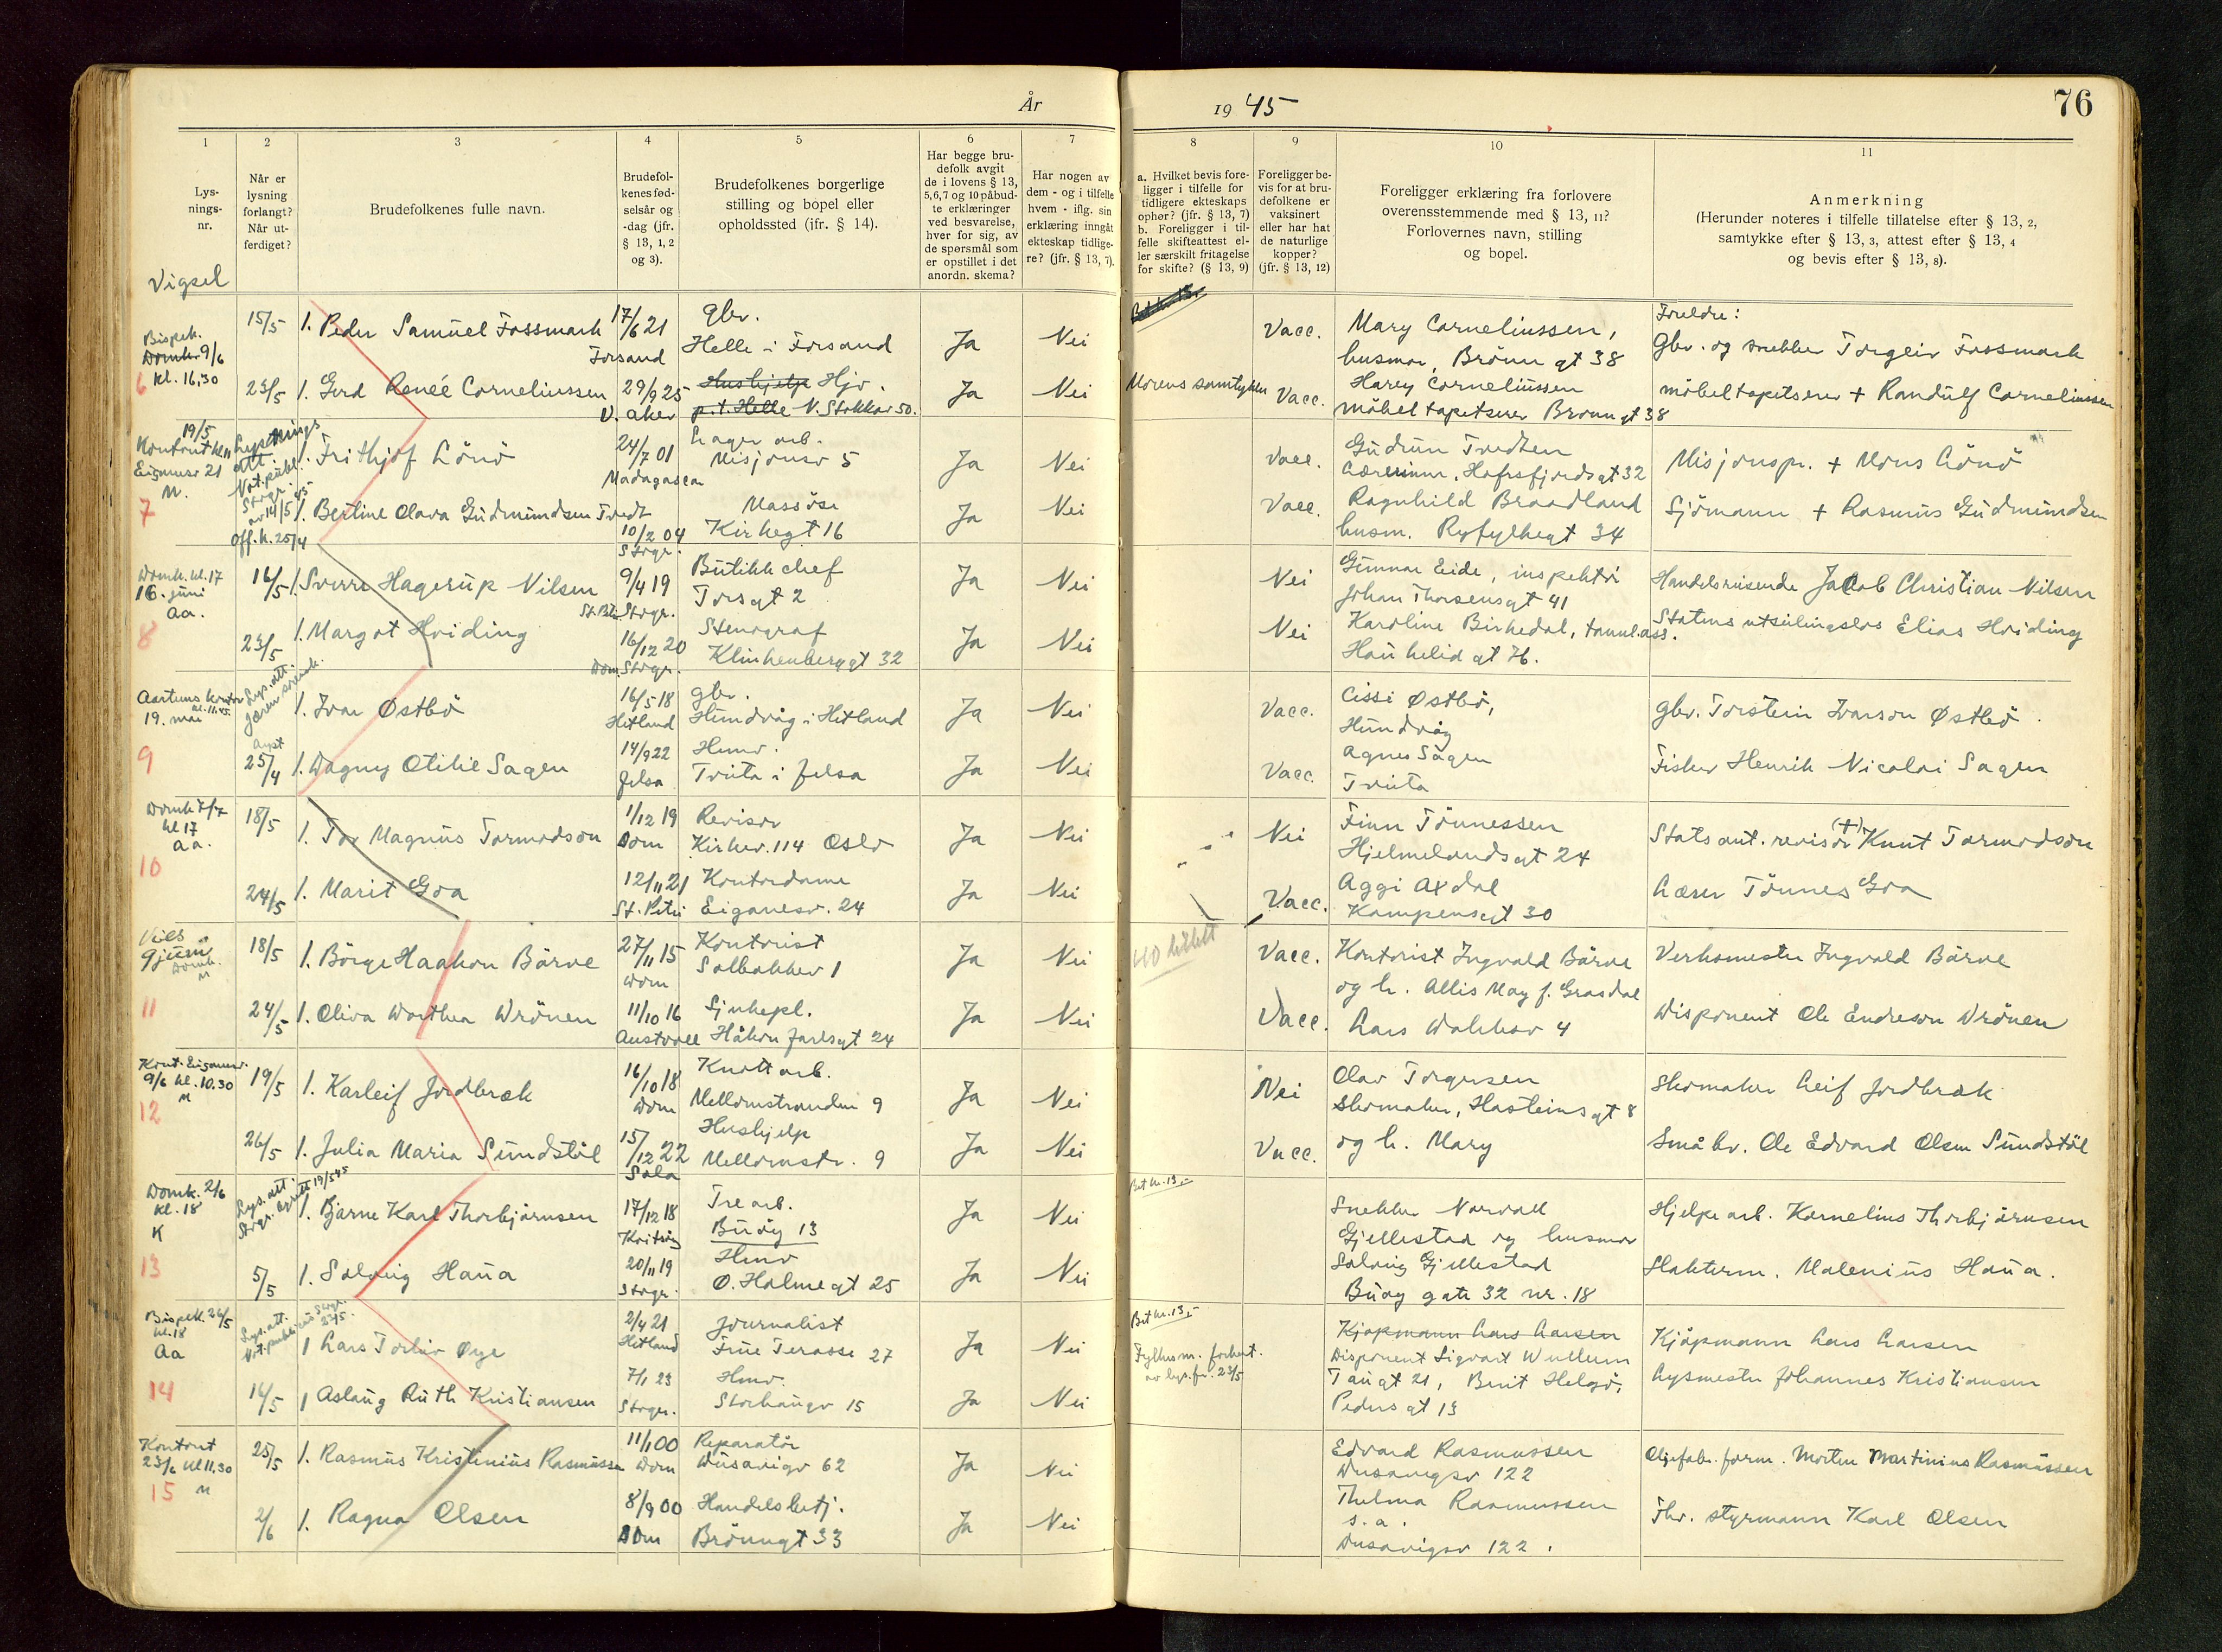 År
19 45
76
1
2
3
4
5
6
7
8
9
10
11
Lys-
nings-
nr.
Når er
lysning
forlangt?
Når ut-
ferdiget?
Brudefolkenes fulle navn.
Brudefol-
kenes fød-
selsår og
-dag (jfr.
§ 13, 1, 2
og 3).
Brudefolkenes borgerlige
stilling og bopel eller
opholdssted (jfr. § 14).
Har begge bru-
defolk avgit
de i lovens § 13,
5, 6, 7 og 10 påbud-
te erklæringer
ved besvarelse,
hver for sig, av
de spørsmål som
er opstillet i det
anordn. skema?
Har nogen av
dem - og i tilfelle
hvem - iflg. sin
erklæring inngått
ekteskap tidlige-
re? (jfr. § 13, 7).
a. Hvilket bevis fore-
ligger i tilfelle for
tidligere ekteskaps
ophør? (jfr. § 13, 7)
b. Foreligger i til-
felle skifteattest el-
ler særskilt fritagelse
for skifte? (§ 13, 9)
Foreligger be-
vis for at bru-
defolkene er
vaksinert
eller har hat
de naturlige
kopper?
(jfr. § 13, 12)
Foreligger erklæring fra forlovere
overensstemmende med § 13, 11?
Forlovernes navn, stilling
og bopel.
Anmerkning
(Herunder noteres i tilfelle tillatelse efter § 13, 2,
samtykke efter § 13, 3, attest efter § 13, 4
og bevis efter § 13, 8).
Vigsel
Bispek.
Domk. 9/6
kl. 16,30
6
15/5 1. Peder Samuel Fossmark 17/6 21 gbr. Ja Nei Vacc. Mary Corneliussen, Foreldre:
Forsand Helle i Forsand husmor, Brönngt 38 Gbr. og snekker Torgeir Fossmark
23/5 1. Gerd Reneé Corneliussen 29/9 25 Hushjelp Hjv. Ja Nei Morens samtykke Vacc. Harry Corneliussen möbeltapetserer + Randulf Corneliussen
V. Aker p.t. Helle N. Stokkav 50. möbeltapetserer Brönngt 38
19/5
Kontoret kl 11
Eiganesv 21
M.
7
Lysnings
att.
Not. publ.
Stvgr.
av 14/5 45
1. Frithjof Lönö 24/7 01 Lager arb. Ja Nei Vacc. Gudrun Tvedten Misjonspr. + Mons Lönö
Madagascar Misjonsv 5 Lærerinne, Hafrsfjordsgt 32
1. Bertine Olava Gudmundsen Tvedt Massöse Ja Nei Vacc. Ragnhild Braadland Sjömann + Rasmus Gudmundsen
Off. k. 25/4 10/2 04 Kirkegt 16 husm. Ryfylkegt 34
Stvgr.
Domk. kl. 17
16. juni
Aa.
8
16/5 1. Sverre Hagerup Nilsen 9/4 19 Butikkchef Ja Nei Nei Gunnar Eide, inspektör Handelsreisende Jacob Christian Nilsen
St. Petri Stvgr. Torsgt 2 Johan Thorsensgt 41
23/5 1. Margot Hviding 16/12 20 Stenograf Ja Nei Nei Karoline Birkedal, tannl.ass. Statens utsiilingslos Elias Hviding
Dom. Stvgr. Klinkenberggt 32 Haukelid gt 76.
Aartuns kontor
kl. 11.45.
19. mai
9
Lys. att.
1. Ivar Østbö 16/5 18 gbr. Ja Nei Vacc. Cissi Østbö, gbr. Torstein Ivarson Østbö
Hetland Hundvåg i Hetland Hundvåg
25/4 1. Dagny Otilie Sagen 14/9 22 Hmv. Ja Nei Vacc. Agnes Sagen Fisker Henrik Nicolai Sagen
Jelsa Tveita i Jelsa Tveita
Domk 7/7
kl 17
Aa.
10
18/5 1. Tor Magnus Tormodson 1/12 19 Revisor Ja Nei Nei Finn Tönnessen Stats aut. revisor (+) Knut Tormodson
Dom Kirkev. 114 Oslo Hjelmelandsgt 24
24/5 1. Marit Goa 12/11 21 Kontordame Ja Nei Vacc. Aggi Axdal Lærer Tönnes Goa
St. Petri Eiganesv. 24 Kampensgt 30
9 juni
Domk.
M
11
18/5 1. Börge Haakon Bärve 27/11 15 Kontorist Ja Nei Vacc. Kontorist Ingvald Bärve Verksmester Ingvald Bärve
Dom Solbakkev 1 og h. Allis May f. Grasdal
24/5 1. Oliva Dorthea Drönen 11/10 16 Sjukepl. Ja Nei Vacc. Lars Dahlesv 4 Disponent Ole Endreson Drönen
Austvoll Håkon Jarlsgt 24
Kont. Eiganesv.
9/6 kl. 10.30
M
12
19/5 1. Karleif Jordbræk 16/10 18 Knottarb. Ja Nei Nei Olav Torgersen Skomaker Leif Jordbræk
Dom Mellomstranden 9 Skomaker, Hasteinsgt 8
26/5 1. Julia Maria Sundstöl 15/12 22 Hushjelp Ja Nei Vacc. og h. Mary Småbr. Ole Edvard Olsen Sundstöl
Sola Mellomstr. 9
Domk. 2/6
kl. 18
K
13
Lys. att. 19/5 45
1. Bjarne Karl Thorbjörnsen 17/12 18 Trearb. Ja Nei Bet kr. 13,- Snekker Norvall Hjelpearb. Kornelius Thorbjörnsen
Buöy 13 Gjellestad og husmor
5/5 1. Solveig Haua 20/11 19 Hmv Ja Nei Solveig Gjellestad Slakterm. Malenius Haua.
Stvgr. Ø. Holmegt 25 Buöy gate 32 nr. 18
Bispek. 26/5
kl. 18
Aa
14
Lys. att.
1 Lars Torleiv Øye 2/4 21 Journalist Ja Nei Bet kr. 13,- Kjøpmann Lars Larsen Kjöpmann Lars Larsen
Hetland Frue Terasse 27 Fylkesm. forkort. Disponent Sigvart Wullum
av lys.fr. 23/5
16/5 1 Aslaug Ruth Kristiansen 7/1 23 Hmv. Ja Nei Taugt 21, Berit Helgö, Lysmester Johannes Kristiansen
Stvgr. Storhaugv 15 Pedersgt 13
Kontoret
23/6 kl 11,30
M
15
25/5 1. Rasmus Kristinius Rasmussen 11/1 00 Reparatör Ja Nei Edvard Rasmussen Oljefabr. form. Morten Martinius Rasmussen
Dom Dusavigv 62 Dusavigsv 122
2/6 1. Ragna Olsen 8/9 00 Handelsbetj. Ja Nei Thelma Rasmussen Fhv. styrmann Karl Olsen
Dom Brönngt 33 s.a.
Dusavigsv 122.